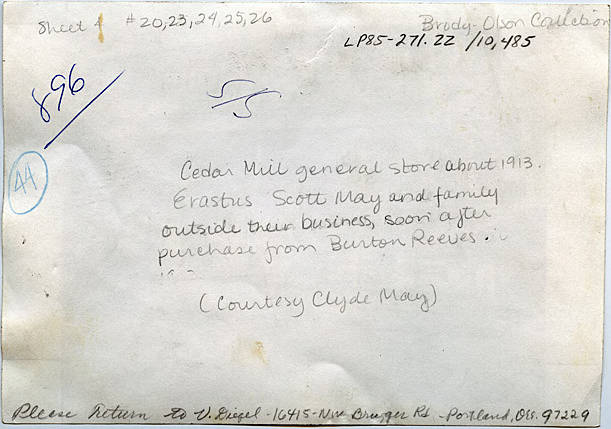 Sheet 4 #20,23,24,25,26
Brody-Olson Collection
LP85-271.22 /10,485
896
44
Cedar Mill general store about 1913.
Erastus Scott May and family
outside their business, soon after
purchase from Burton Reeves.
(Courtesy Clyde May)
Please Return to V. Diegel-16415-NW Brugger Rd.-Portland, Ore. 97229